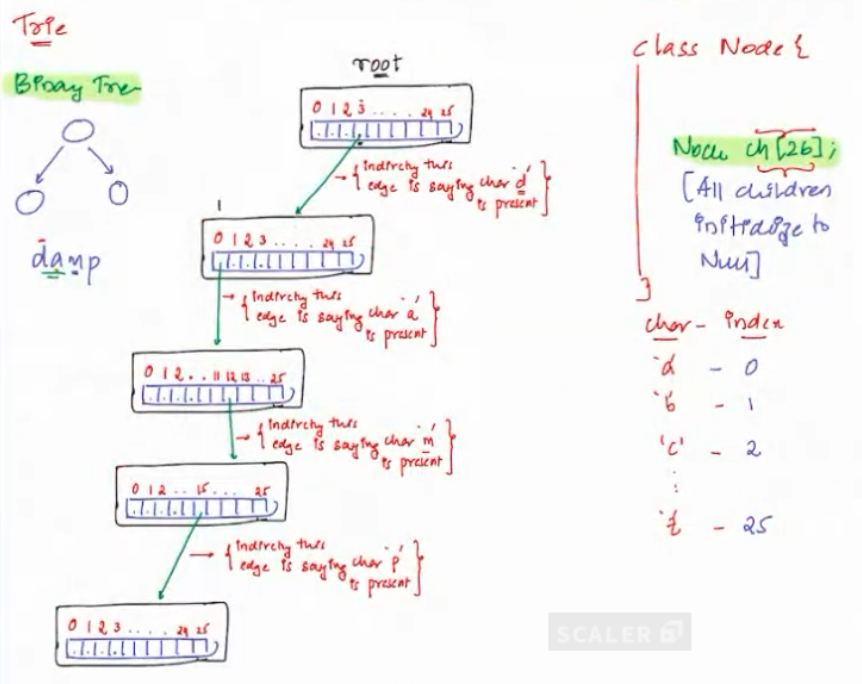 Trie
Binary Tree
damp
root
0 1 2 3 .... 24 25
{ indirectly this
edge is saying char 'd'
is present }
1
0 1 2 3 .... 24 25
{ indirectly this
edge is saying char 'a'
is present }
0 1 2 .. 11 12 13 .. 25
{ indirectly this
edge is saying char 'm'
is present }
0 1 2 .. 15 ... 25
{ indirectly this
edge is saying char 'p'
is present }
0 1 2 3 .... 24 25
class Node {
Node ch[26];
[All children
initialize to
Null]
}
char - index
'a - 0
'b - 1
'c' - 2
:
'z - 25
SCALER